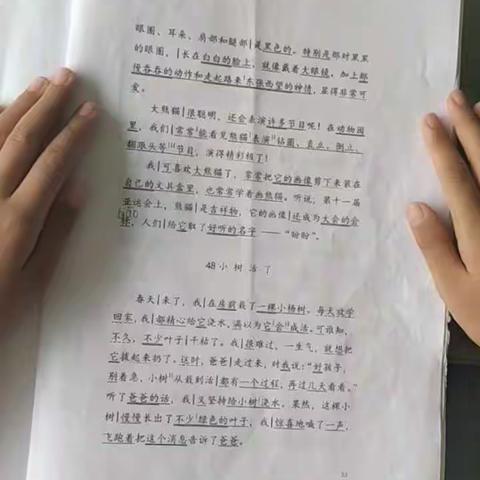 眼圈、耳朵、肩部和腿部是黑色的。特别是那对黑黑
的眼圈,长在白白的脸上,就像戴着大眼镜,加上慢
慢吞吞的动作和走起路来东张西望的神情,显得非常可
爱。
大熊猫很聪明,还会表演许多节目呢!在动物园
里,我们常常能看见熊猫表演钻圈、直立、倒立、
翻跟头等节目,演得精彩极了!
我可喜欢大熊猫了,常常把它的画像剪下来装在
自己的文具盒里,也常常学着画熊猫。听说,第十一届
亚运会上,熊猫是吉祥物,它的画像还成为大会的会
人们给它取了好听的名字——“盼盼”。
48小树活了
春天来了,我在房前栽了一棵小杨树,每天放学
回家,我都精心给它浇水,满以为它会成活。可谁知,
不久,不少叶子干枯了。我很难过,一生气,就想把
它拔起来扔了。这时,爸爸走过来,对我说:“好孩子,
别着急,小树从栽到活都有一个过程,再过几天看看。”
听了爸爸的话,我又坚持给小树浇水,果然,这棵小
树慢慢长出了不少绿色的叶子,我惊喜地喊了一声,
飞跑着把这个消息告诉了爸爸。